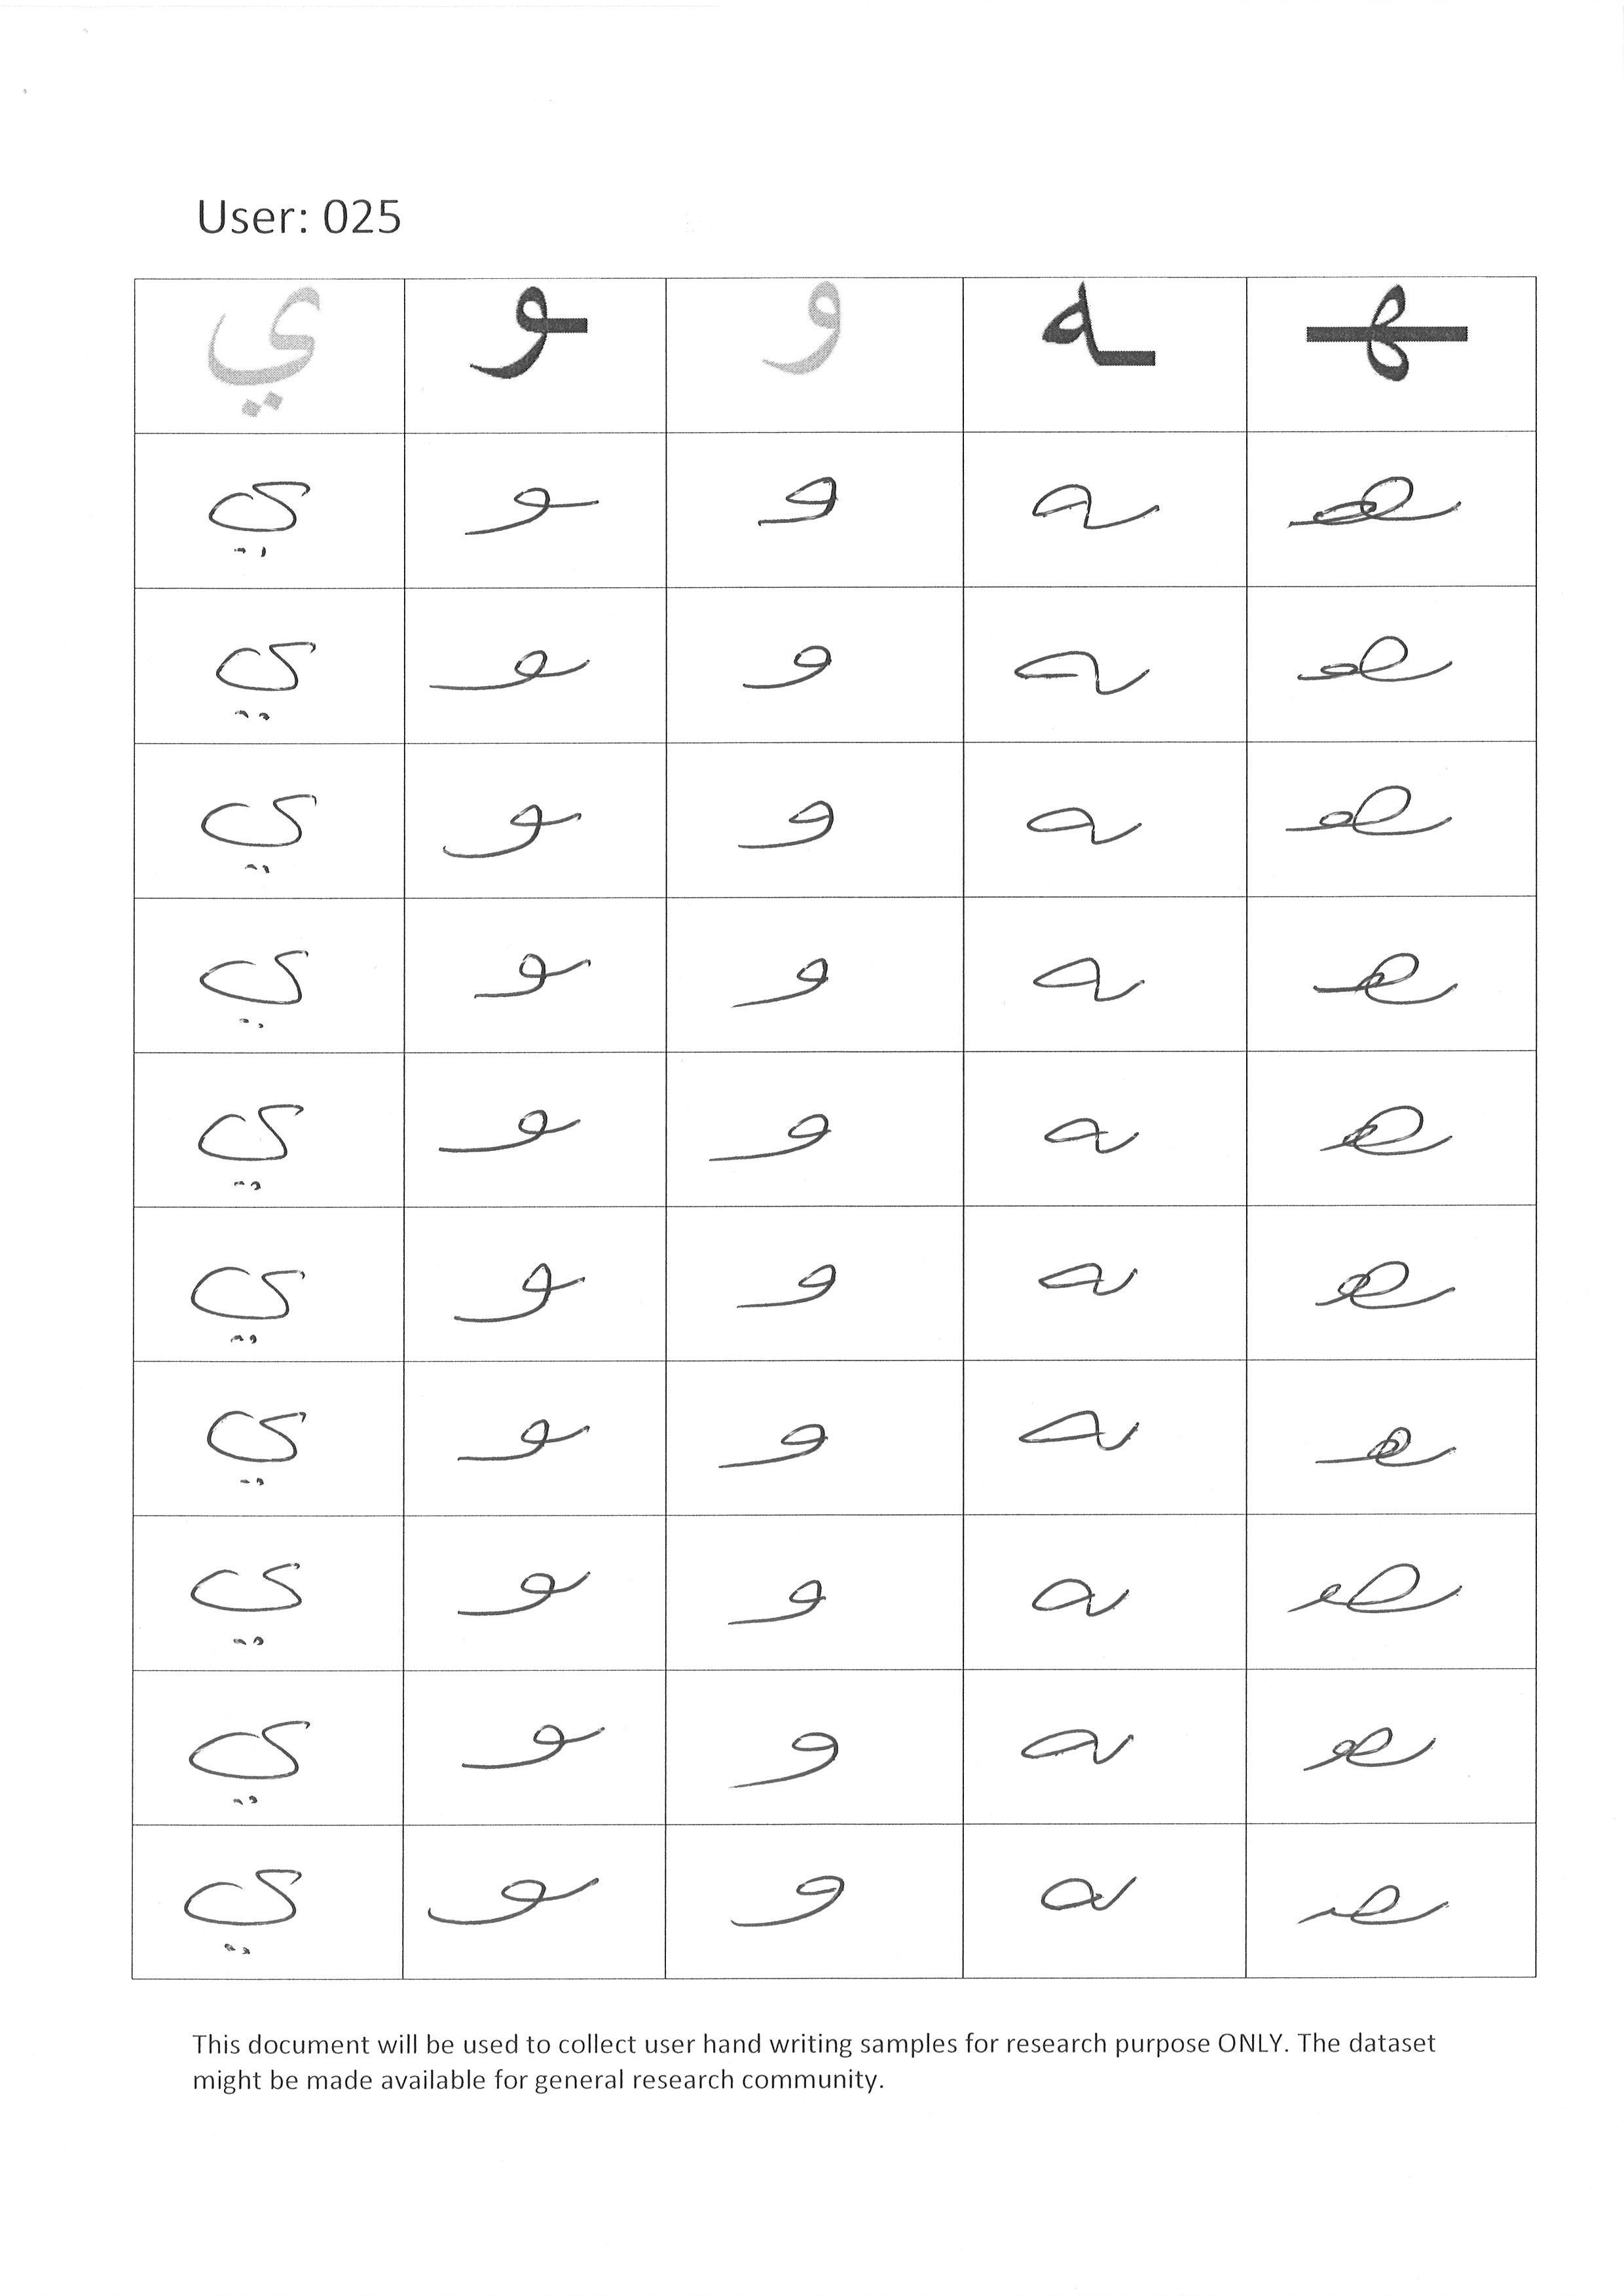 User: 025
ي ـو و ـه ـهـ
ي ـو و ـه ـهـ
ي ـو و ـه ـهـ
ي ـو و ـه ـهـ
ي ـو و ـه ـهـ
ي ـو و ـه ـهـ
ي ـو و ـه ـهـ
ي ـو و ـه ـهـ
ي ـو و ـه ـهـ
ي ـو و ـه ـهـ
ي ـو و ـه ـهـ
This document will be used to collect user hand writing samples for research purpose ONLY. The dataset
might be made available for general research community.